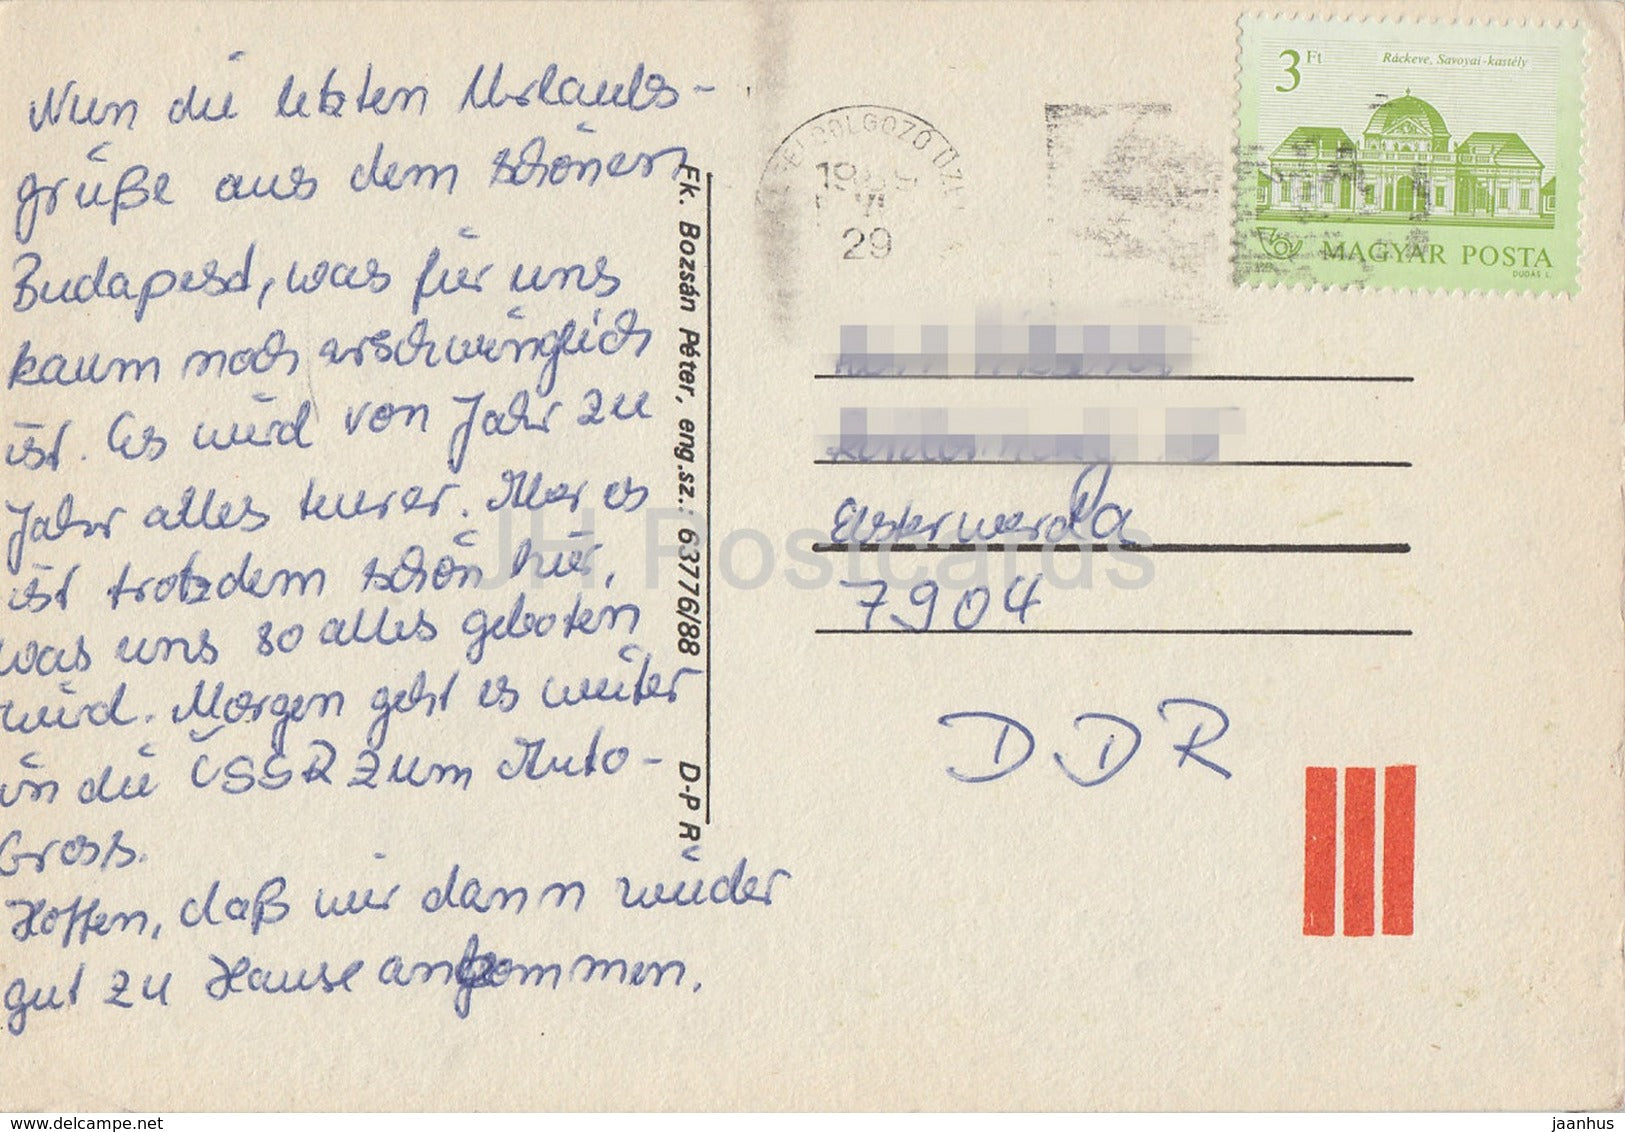 Nun die letzten Urlaubs-
grüße aus dem schönen
Budapest, was für uns
kaum noch erschwinglich
ist. Es wird von Jahr zu
Jahr alles teurer. Aber es
ist trotzdem schön hier,
was uns so alles geboten
wird. Morgen geht es weiter
in die ČSSR zum Auto-
Cross.
Hoffen, daß wir dann wieder
gut zu Hause ankommen.
Fk. Bozsán Péter, eng.sz.: 63776/88 D-P R
29
3 Ft
Ráckeve, Savoyai-kastély
MAGYAR POSTA
DUDÁS L.
Elsterwerda
7904
DDR
JH Postcards
delcampe.net
jaanhus